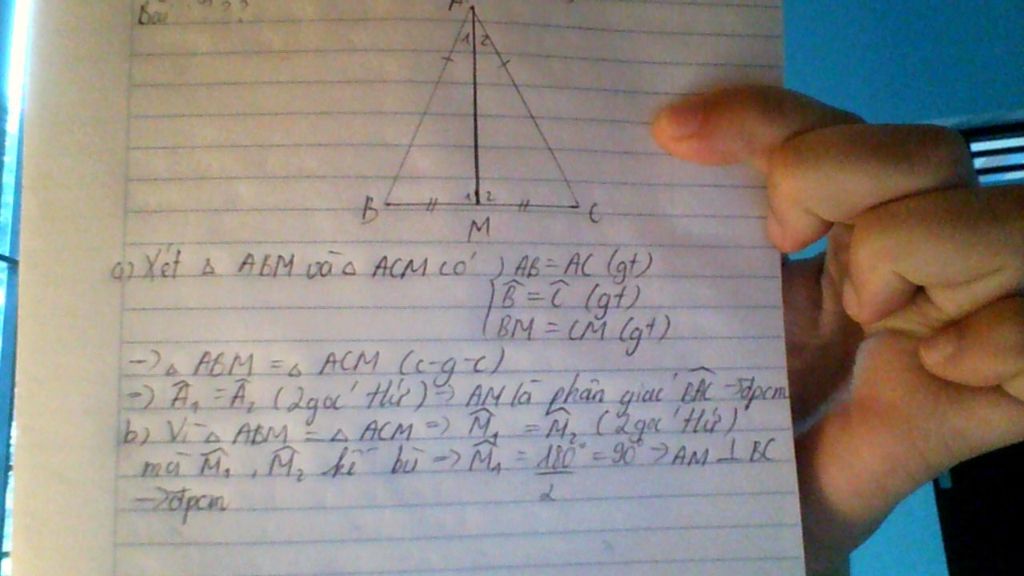 Bài
A
1 2
B 1 2 C
M
a) Xét △ ABM và △ ACM có { AB = AC (gt)
B̂ = Ĉ (gt)
BM = CM (gt)
→ △ ABM = △ ACM (c-g-c)
→ Â₁ = Â₂ (2 góc t/ứ) → AM là phân giác B̂AC → đpcm
b) Vì △ ABM = △ ACM → M̂₁ = M̂₂ (2 góc t/ứ)
mà M̂₁, M̂₂ kề bù → M̂₁ = 180°/2 = 90° → AM ⊥ BC
→ đpcm